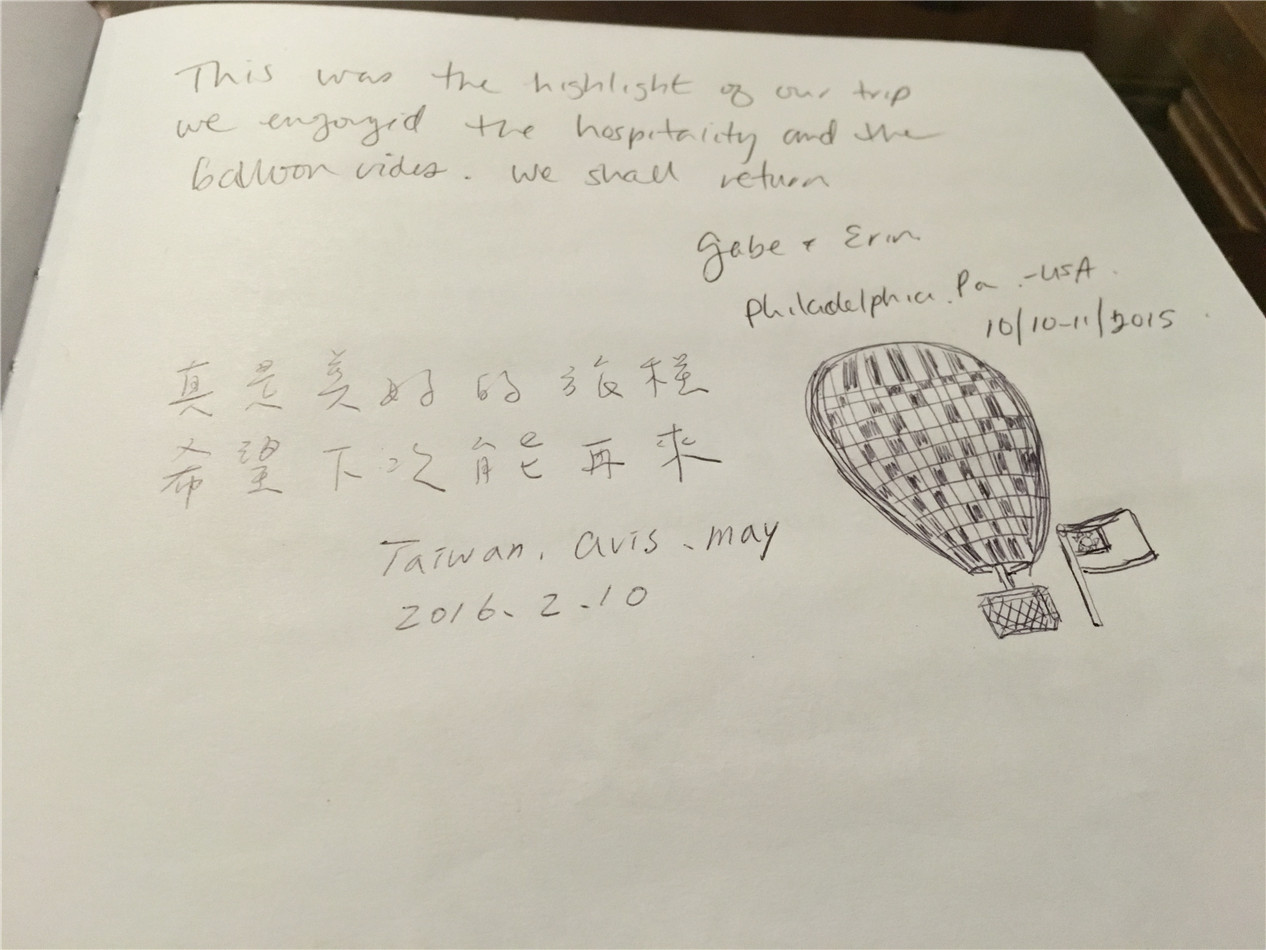 This was the highlight of our trip
we engoyed the hospitality and the
balloon rides. we shall return
Gabe & Erin
Philadelphia. Pa. -USA.
10/10-11/2015
真是美好的旅程
希望下次能再來
Taiwan. avis、may
2016、2、10